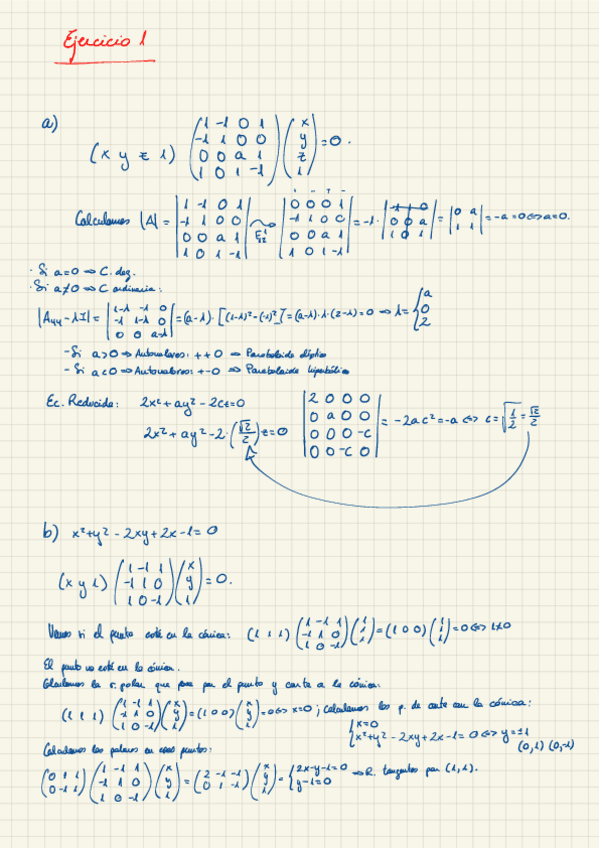 Ejercicio 1
a)
(x y z 1) (1 -1 0 1 / -1 1 0 0 / 0 0 a 1 / 1 0 1 -1) (x / y / z / 1) = 0.
Calculamos |A| = |1 -1 0 1 / -1 1 0 0 / 0 0 a 1 / 1 0 1 -1| = |0 0 0 1 / -1 1 0 0 / 0 0 a 1 / 1 0 1 -1| = -1 · |-1 1 0 / 0 0 a / 1 0 1| = |0 a / 1 1| = -a = 0 ⇔ a = 0.
· Si a=0 ⇒ C. deg.
· Si a≠0 ⇒ C ordinaria:
|A44 - λI| = |1-λ -1 0 / -1 1-λ 0 / 0 0 a-λ| = (a-λ) · [(1-λ)² - (-1)²] = (a-λ)·λ·(2-λ) = 0 ⇒ λ = {a / 0 / 2
- Si a>0 ⇒ Autovalores: + + 0 ⇒ Paraboloide elíptico
- Si a<0 ⇒ Autovalores: + - 0 ⇒ Paraboloide hiperbólico
Ec. Reducida: 2x² + ay² - 2cz = 0
2x² + ay² - 2·(√2/2)z = 0
|2 0 0 0 / 0 a 0 0 / 0 0 0 -c / 0 0 -c 0| = -2ac² = -a ⇔ c = √(1/2) = √2/2
b) x² + y² - 2xy + 2x - 1 = 0
(x y 1) (1 -1 1 / -1 1 0 / 1 0 -1) (x / y / 1) = 0.
Vemos si el punto está en la cónica: (1 1 1) (1 -1 1 / -1 1 0 / 1 0 -1) (1 / 1 / 1) = (1 0 0) (1 / 1 / 1) = 0 ⇔ 1≠0
El punto no está en la cónica.
Calculamos la r. polar que pasa por el punto y corta a la cónica:
(1 1 1) (1 -1 1 / -1 1 0 / 1 0 -1) (x / y / 1) = (1 0 0) (x / y / 1) = 0 ⇔ x=0; calculamos los p. de corte con la cónica:
{x=0 / x² + y² - 2xy + 2x - 1 = 0 ⇔ y = ±1
(0,1) (0,-1)
Calculamos las polares en esos puntos:
(0 1 1 / 0 -1 1) (1 -1 1 / -1 1 0 / 1 0 -1) (x / y / 1) = (2 -1 -1 / 0 1 -1) (x / y / 1) = {2x-y-1=0 / y-1=0 ⇒ R. tangentes por (1,1).